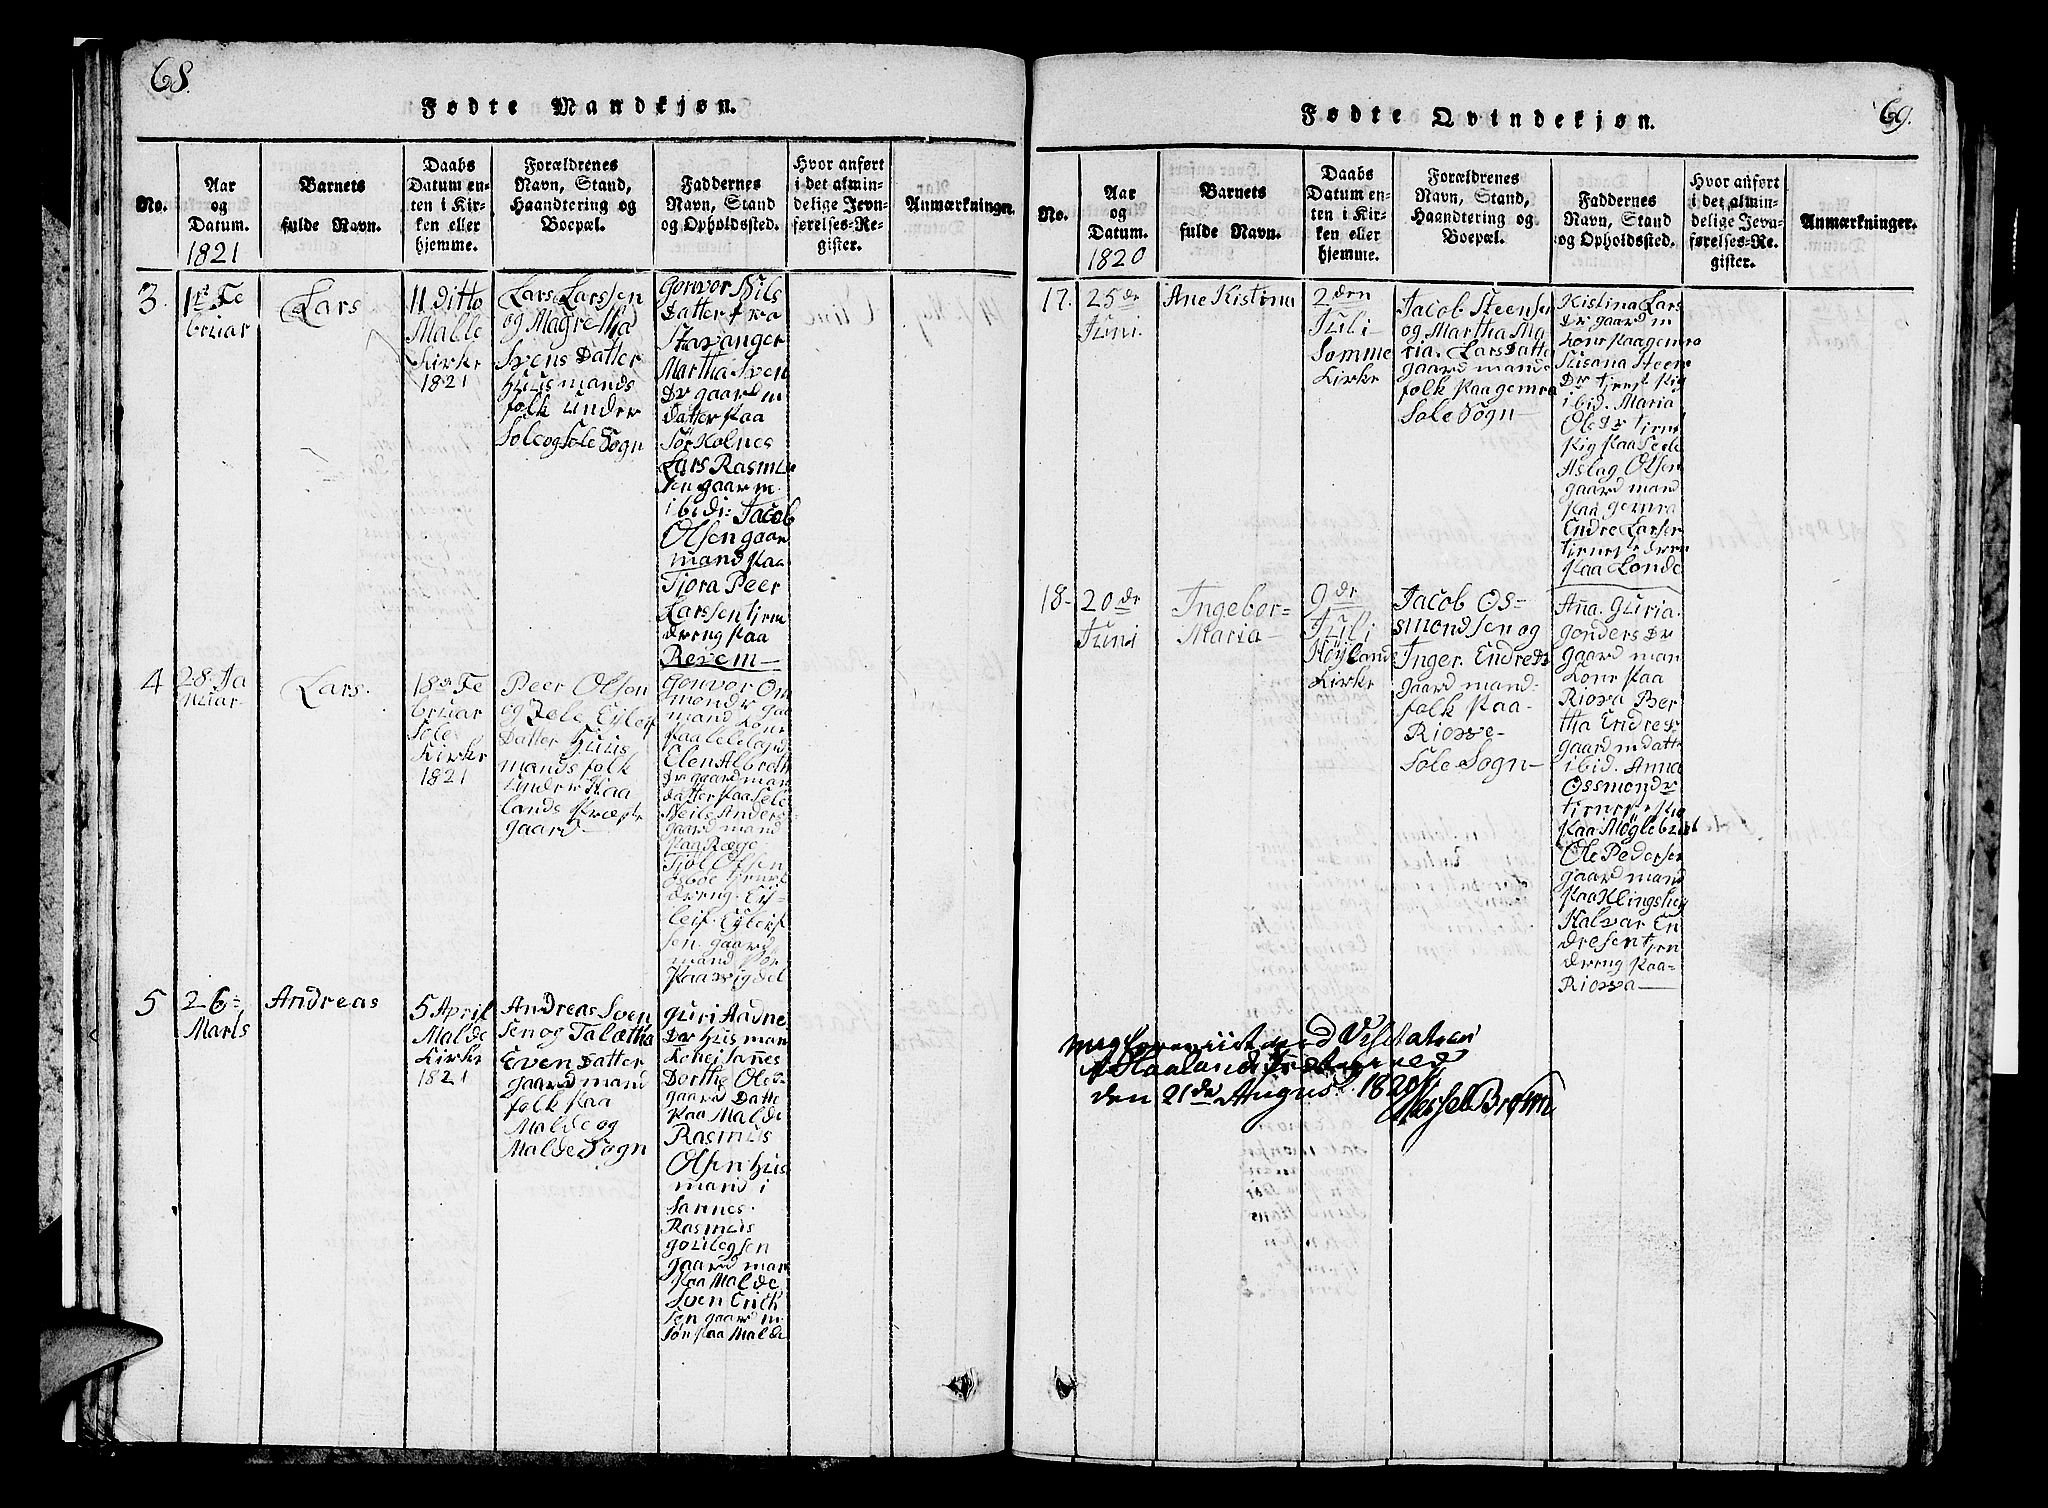 68.
Fødte Mandkjøn.
No.
Aar
og
Datum.
1821
Barnets
fulde Navn.
Daabs
Datum en-
ten i Kir-
ken eller
hjemme.
Forældrenes
Navn, Stand,
Haandtering og
Boepæl.
Faddernes
Navn, Stand
og Opholdssted.
Hvor anført
i det almin-
delige Jevn-
førelses-Re-
gister.
Anmærkninger.
3.
1ste Fe
bruar
Lars
11 ditto
Malle
Kirke
1821
Lars Larssen
og Magretha
Svens Datter
Huusmands
folk under
Sole og Sole Sogn
Gonvor Nils
Datter fra
Stavanger
Martha Sven
Dr gaard m
Datter paa
Sør Kolnes
Lars Rasmu
sen gaar m.
ibidi: Jacob
Olsen gaar
mand paa
Tjora Peer
Larssen tjene
dreng paa
Revem
4
28. Ja
nuar
Lars.
18de Fe
bruar
Sole
Kirke
1821
Peer Olsen
og Zele Eyleif
Datter Huus
mands folk
under Haa
lands Præste
gaard
Gonvor Om
monds gaa
mand kone
paa
Elen Albreth
Dr gaard man
datter paa Sele
Neils Anders
gaard mand
paa Ræge
Tjøl Olsen
tjenest
dreng. Ey-
leif. Eyleif
sen gaard
mand Sør
paa
5
26=
Marts
Andreas
5 April
Malde
Kirke
1821
Andreas Sven
sen og Talætha
Even Datter
gaard mand
folk paa
Malde og
Malde Sogn
Guri Aadne
Dtr Husman
Kone i Sannes
Dorthe Oles
gaard Datte
paa Malde
Rasmus
Olsen Hus
mand i
Sannes.
Rasmus
gaard man
paa Malde
Sven Erik
sen gaard m.
søn paa Malde
69.
Fødte Qvindekjøn.
No.
Aar
og
Datum.
1820
Barnets
fulde Navn.
Daabs
Datum en-
ten i Kir-
ken eller
hjemme.
Forældrenes
Navn, Stand,
Haandtering og
Boepæl.
Faddernes
Navn, Stand
og Opholdssted.
Hvor anført
i det almin-
delige Jevn-
førelses-Re-
gister.
Anmærkninger.
17.
25de
Juni.
Ane Kistina
2den
Juli
Somme
Kirke
Jacob Steensen
og Martha Ma
ria. Lars Datte
gaard mands
folk paa gemra
Sole Sogn
Kistina Lars
Dr gaard m
kone paa gemra
Susana Steen
Dr tjenst pig
ibid. Maria
Ole Dr tjenst
pig paa Seele
Aslag Olsen
gaard mand
paa gemra
Endre Larsen
tjeneste dren
paa Sonde
18-
20de
Juni
Ingebor=
Maria
9de
Juli
Höyland
Kirke
Jacob Os-
smondsen og
Inger. Endreds
gaard mand-
folk paa-
Riovve-
Sole Sogn
Ana. Guria.
Gonders Dr
gaard man
kone paa
Riova Ber
tha Endres
gaard m datte
ibid. Anna
Ossmonds
tjeneste pig
paa Möglebust
Ole Pedersen
gaard mand
paa Klingsheg
Halvar En
dresen tjen
dreng paa-
Riovva
mig foreviist ved Visitatsen
Haaland Præstegaard
den 21de August. 1820.